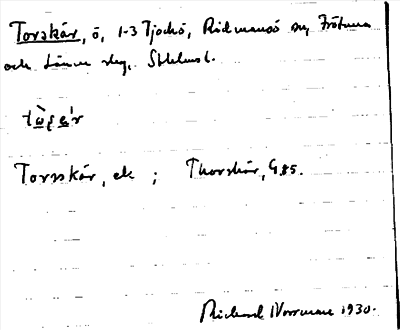 Torskär, ö, 1-3 Tjockö, Rådmansö sn, Frötuna
och Länna slg, Sthlms l.
Torsskär, ek ; Thorskär, G.85.
Richard Norrman 1930.